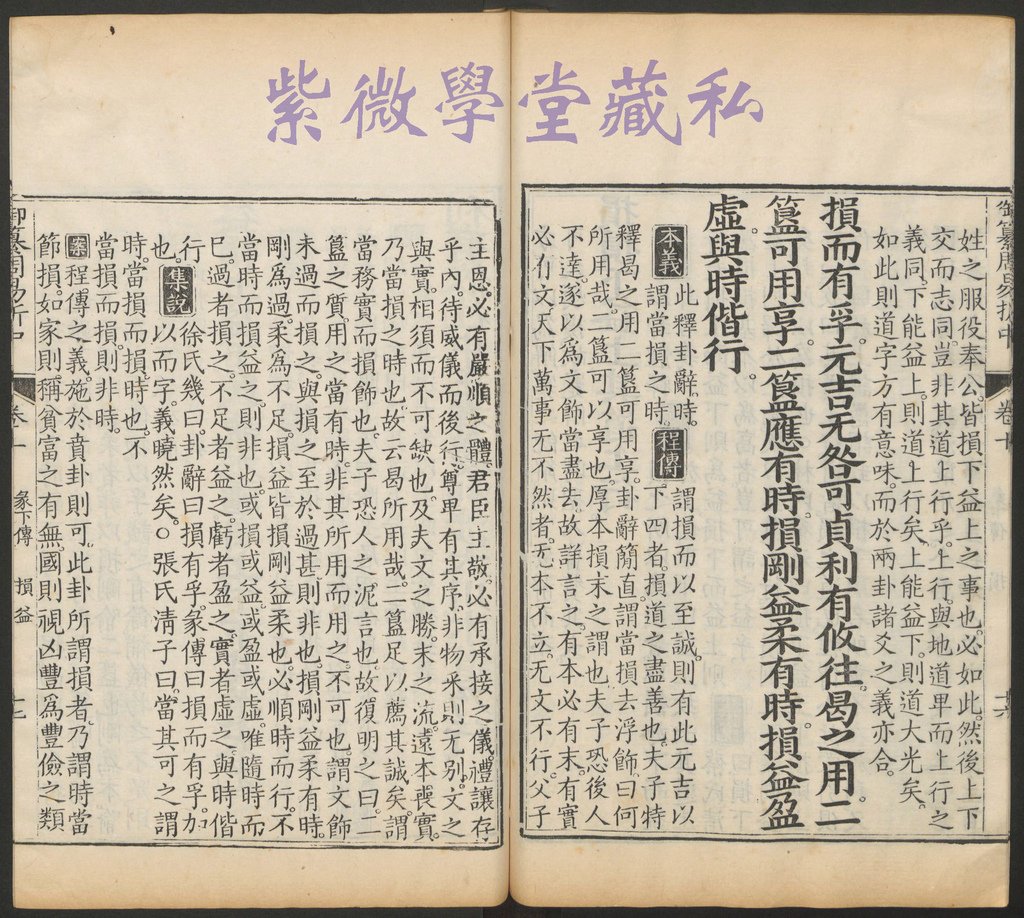 紫微學堂藏私
姓之服役奉公。皆損下益上之事也。必如此。然後上下
交而志同。豈非其道上行乎。上行。與地道卑而上行之
義同。下能益上。則道上行矣。上能益下。則道大光矣。
如此則道字方有意味。而於兩卦諸爻之義亦合。
損而有孚。元吉无咎可貞利有攸往。曷之用二
簋可用享。二簋應有時。損剛益柔有時。損益盈
虛。與時偕行。
本義 此釋卦辭。時。謂當損之時。 程傳 謂損而以至誠。則有此元吉以
下四者。損道之盡善也。夫子特
釋曷之用二簋可用享。卦辭簡直。謂當損去浮飾。曰何
所用哉。二簋可以享也。厚本損末之謂也。夫子恐後人
不達。遂以爲文飾當盡去。故詳言之。有本必有末。有實
必有文。天下萬事无不然者。无本不立。无文不行。父子
主恩。必有嚴順之體。君臣主敬。必有承接之儀。禮讓存
乎內。待威儀而後行。尊卑有其序。非物采則无別。文之
與實。相須而不可缺也。及夫文之勝。末之流。遠本喪實。
乃當損之時也。故云曷所用哉。二簋足以薦其誠矣。謂
當務實而損飾也。夫子恐人之泥言也。故復明之曰二
簋之質。用之當有時。非其所用而用之。不可也。謂文飾
未過而損之。與損之至於過甚。則非也。損剛益柔有時。
剛爲過。柔爲不足。損益皆損剛益柔也。必順時而行。不
當時而損益之。則非也。或損或益。或盈或虛。唯隨時而
已。過者損之。不足者益之。虧者盈之。實者虛之。與時偕
行也。 集說 徐氏幾曰。卦辭曰損有孚。彖傳曰損而有孚。加
以而字。義曉然矣。○張氏清子曰。當其可之謂
時。當損而損。時也。不
當損而損。則非時。
案 程傳之義。施於賁卦則可。此卦所謂損者。乃謂時當
節損。如家則稱貧富之有無。國則視凶豐爲豐儉之類
御纂周易折中
卷十
彖下傳
損 益